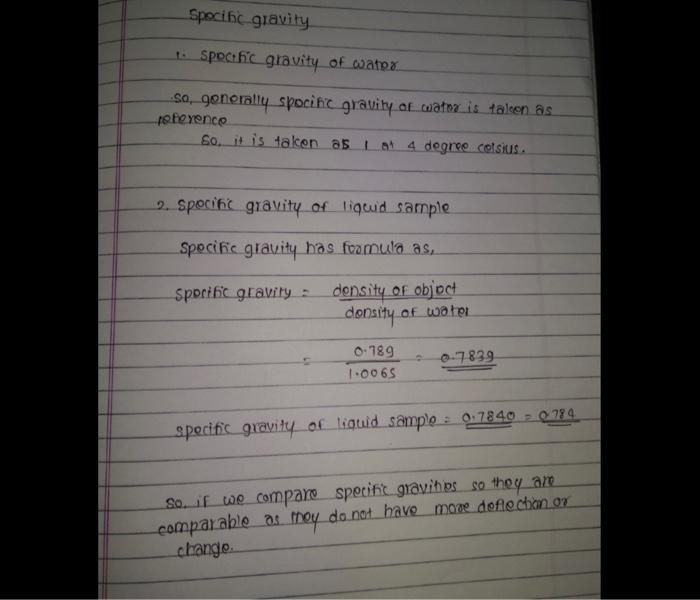 Specific gravity
1. specific gravity of water
so, generally specific gravity of water is taken as
reference
So, it is taken as 1 at 4 degree celsius.
2. specific gravity of liquid sample
specific gravity has formula as,
specific gravity = density of object
density of water
= 0.789
1.0065
= 0.7839
specific gravity of liquid sample = 0.7840 = 0.784
so, if we compare specific gravities so they are
comparable as they do not have more deflection or
change.